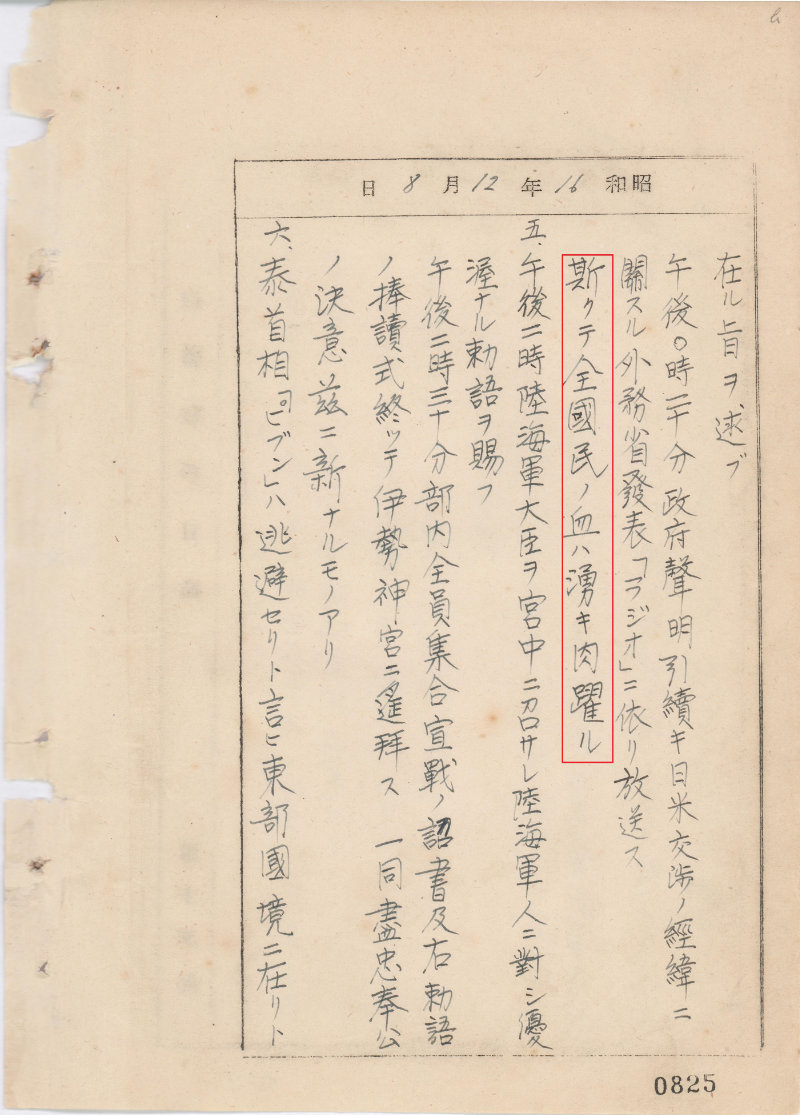 昭和16年12月8日
在ル旨ヲ述ブ
午後〇時二十分政府聲明引續キ日米交渉ノ經緯ニ
關スル外務省發表「ラジオ」ニ依リ放送ス
斯クテ全國民ノ血ハ湧キ肉躍ル
五、午後二時陸海軍大臣ヲ宮中ニ召サレ陸海軍人ニ對シ優
渥ナル勅語ヲ賜フ
午後二時三十分部内全員集合宣戰ノ詔書及右勅語
ノ捧讀式終ツテ伊勢神宮ニ遙拜ス 一同盡忠奉公
ノ決意茲ニ新ナルモノアリ
六、泰首相「ピブン」ハ逃避セリト言ヒ東部國境ニ在リト
0825